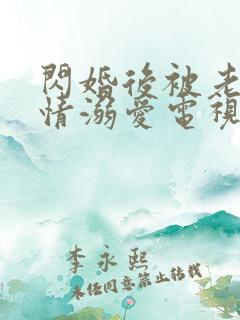 閃婚後被老
情溺愛電視
李永熙
未任同意禁止轉載